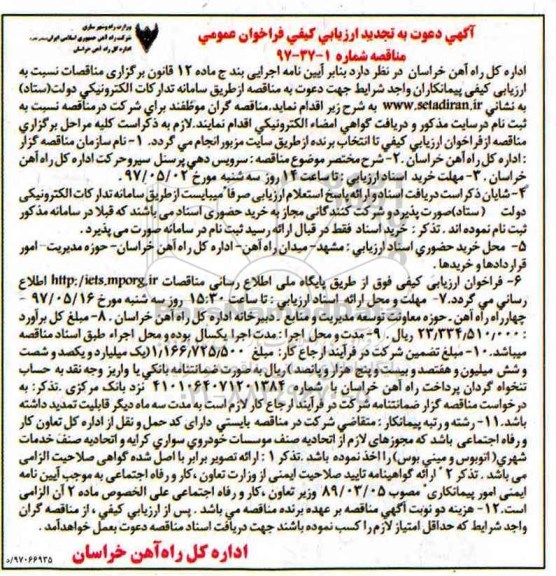 وزارت راه و شهرسازی
شرکت راه آهن جمهوری اسلامی ایران
اداره کل راه آهن خراسان
آگهي دعوت به تجديد ارزيابي كيفي فراخوان عمومي
مناقصه شماره ۱-۳۷-۹۷
اداره کل راه آهن خراسان در نظر دارد بنابر آیین نامه اجرایی بند ج ماده ۱۲ قانون برگزاری مناقصات نسبت به
ارزیابی کیفی پیمانکاران واجد شرایط جهت دعوت به مناقصه ازطریق سامانه تدارکات الکترونیکی دولت(ستاد)
به نشاني www.setadiran.ir به شرح زیر اقدام نماید.مناقصه گران موظفند برای شرکت درمناقصه نسبت به
ثبت نام درسایت مذکور و دریافت گواهی امضاء الکترونیکی اقدام نمایند.لازم به ذکراست کلیه مراحل برگزاری
مناقصه ازفراخوان ارزیابی کیفی تا انتخاب برنده ازطریق سایت مزبور انجام می گردد. ۱- نام سازمان مناقصه گزار
: اداره کل راه آهن خراسان .۲- شرح مختصر موضوع مناقصه : سرویس دهی پرسنل سیروحرکت اداره کل راه آهن
خراسان .۳- مهلت خرید اسناد ارزیابی : تا ساعت ۱۴ روز سه شنبه مورخ ۹۷/۰۵/۰۲.
۴- شایان ذکراست دریافت اسناد وارائه پاسخ استعلام ارزیابی صرفا" میبایست ازطریق سامانه تدارکات الکترونیکی
دولت (ستاد)صورت پذیرد و شرکت کنندگانی مجاز به خرید حضوری اسناد می باشند که قبلا در سامانه مذکور
ثبت نام نموده اند . تذکر : خرید اسناد فقط در قبال ارائه رسید ثبت نام در سامانه صورت می پذیرد .
۵- محل خرید حضوری اسناد ارزیابی : مشهد- میدان راه آهن- اداره کل راه آهن خراسان- حوزه مدیریت- امور
قراردادها و خریدها .
۶- فراخوان ارزیابی کیفی فوق از طریق پایگاه ملی اطلاع رسانی مناقصات http://iets.mporg.ir اطلاع
رسانی می گردد.۷- مهلت و محل ارائه اسناد ارزیابی : تا ساعت ۱۵:۳۰ روز سه شنبه مورخ ۹۷/۰۵/۱۶ -
چهارراه راه آهن - حوزه معاونت توسعه مدیریت و منابع - دبیرخانه اداره کل راه آهن خراسان .۸- مبلغ کل برآورد
: ۲۳,۳۳۴,۵۱۰,۰۰۰ ریال .۹- مدت و محل اجرا : مدت اجرا یکسال بوده و محل اجراء طبق اسناد مناقصه
میباشد.۱۰- مبلغ تضمین شرکت در فرآیند ارجاع کار : مبلغ ۱,۱۶۶,۷۲۵,۵۰۰(یک میلیارد و یکصد و شصت
و شش میلیون و هفتصد و بیست و پنج هزار و پانصد ) ریال به صورت ضمانتنامه بانکی یا واریز وجه نقد به حساب
تنخواه گردان پرداخت راه آهن خراسان با شماره ۴۱۰۱۰۶۴۰۷۱۲۰۱۳۸۴ نزد بانک مرکزی .تذکر: به
درخواست مناقصه گزار ضمانتنامه شرکت در فرآیند ارجاع کار لازم است به مدت سه ماه دیگر قابلیت تمدید داشته
باشد.۱۱- رشته و رتبه پیمانکار : متقاضی شرکت در مناقصه بایستی دارای کد حمل و نقل از اداره کل تعاون کار
و رفاه اجتماعی باشد که مجوزهای لازم از اتحادیه صنف موسسات خودروی سواری کرایه و اتحادیه صنف خدمات
شهری( اتوبوس و مینی بوس) را اخذ نموده باشد .تذکر ۱ : ارائه تصویر برابر با اصل شده گواهی صلاحیت الزامی
می باشد . تذکر ۲" ارائه گواهینامه تایید صلاحیت ایمنی از وزارت تعاون ،کار و رفاه اجتماعی به موجب آیین نامه
ایمنی امور پیمانکاری" مصوب ۸۹/۰۳/۰۵ وزیر تعاون ،کار و رفاه اجتماعی علی الخصوص ماده ۲ آن الزامی
است.۱۲- هزینه دو نوبت آگهی مناقصه بر عهده برنده مناقصه می باشد . پس از ارزیابی کیفی ، از مناقصه گران
واجد شرایط که حداقل امتیاز لازم را کسب نموده باشند جهت دریافت اسناد مناقصه دعوت بعمل خواهدآمد .
اداره کل راه‌آهن خراسان
۹۷۰۶۶۹۳۵/د